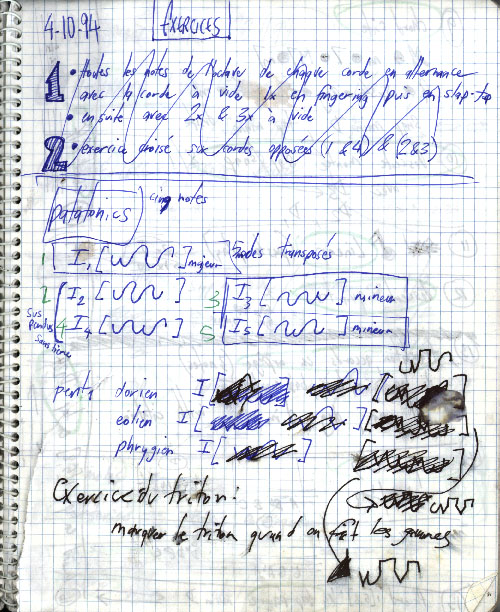 4-10-94 EXERCICES
1 • toutes les notes de l'octave de chaque corde en alternance
avec la corde à vide 1x en fingering puis en slap-tap
• ensuite avec 2x & 3x à vide
2 • exercice croisé sur cordes opposées (1 & 4) & (2 & 3)
patatonics cinq notes
1 I1 [ ] majeur modes transposés
2 I2 [ ] 3 I3 [ ] mineur
sus
4 I4 [ ] 5 I5 [ ] mineur
pendus
sans tierce
pent1 dorien I [ ] [ ]
eolien I [ ] [ ]
phrygien I [ ] [ ]
Exercice du triton:
marquer le triton quand on fait les gammes